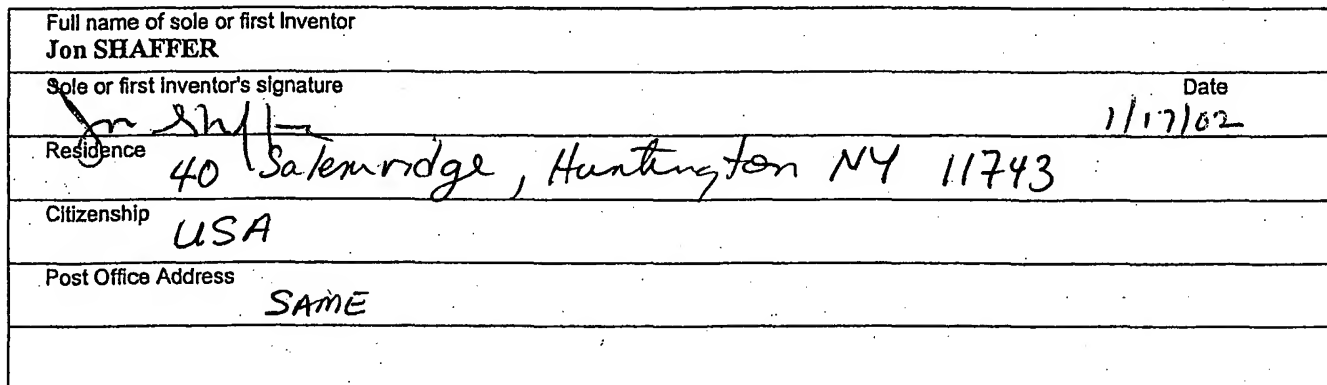 Full name of sole or first Inventor
Jon SHAFFER
Sole or first inventor's signature Date
Jon Shaffer 1/17/02
Residence 40 Salemridge, Huntington NY 11743
Citizenship USA
Post Office Address
SAME